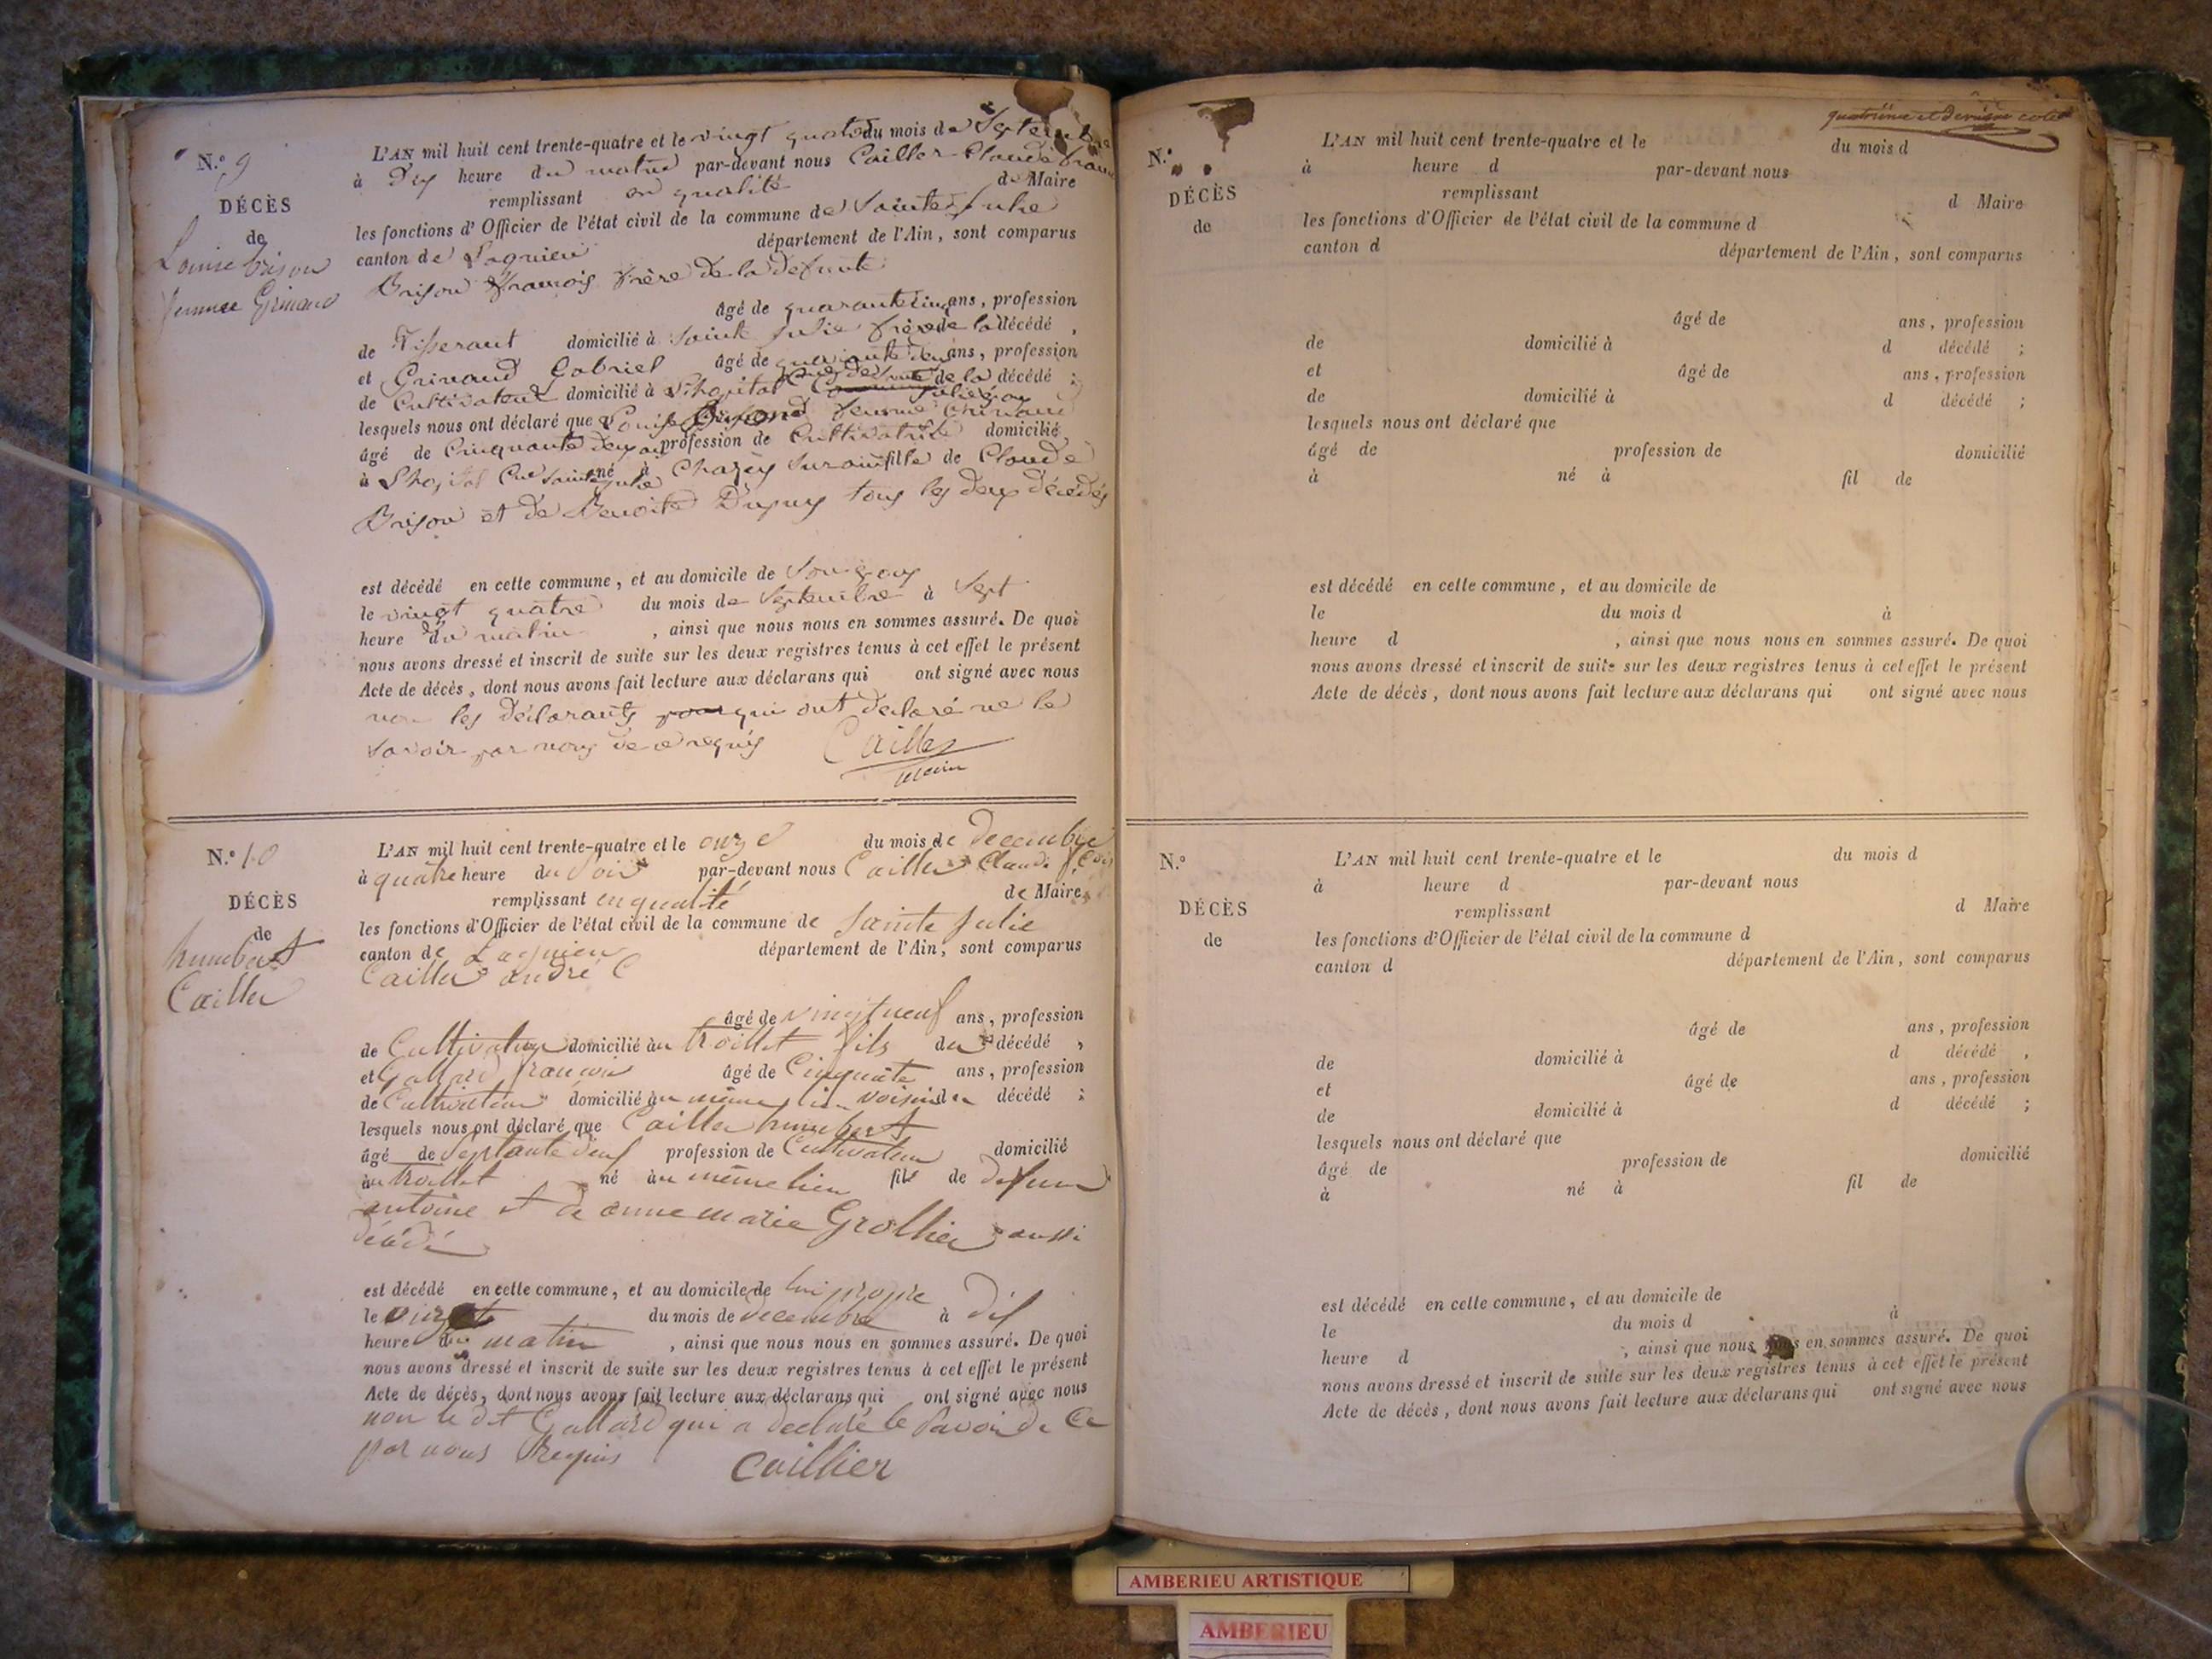 N.° 9
DÉCÈS
de
Louise brison
femme Grinand
L'AN mil huit cent trente-quatre et le vingt quatre du mois de Septembre
à Dix heure du matin par-devant nous Cailler Claude
remplissant en qualité de Maire
les fonctions d'Officier de l'état civil de la commune de Sainte Julie
canton de Lagnieu département de l'Ain, sont comparus
Brison François frère de la défunte
âgé de quarante cinq ans, profession
de Tisserant domicilié à Sainte Julie frère de la décédé,
et Grinand Gabriel âgé de quarante deux ans, profession
de Cultivateur domicilié à L'hopital de la décédé;
lesquels nous ont déclaré que Louise Brison femme Grinand
âgé de Cinquante deux ans profession de Cultivatrice domicilié
à L'hopital Cne Sainte Julie né à Chazey Surain fille de Claude
Brison et de Benoite Dupuy tous les deux décédés
est décédé en cette commune, et au domicile de
le vingt quatre du mois de Septembre à Sept
heure du matin, ainsi que nous nous en sommes assuré. De quoi
nous avons dressé et inscrit de suite sur les deux registres tenus à cet effet le présent
Acte de décès, dont nous avons fait lecture aux déclarans qui ont signé avec nous
non les déclarants qui ont declaré ne le
savoir par nous de ce requis Cailler
Maire
N.° 10
DÉCÈS
de
humbert
Cailler
L'AN mil huit cent trente-quatre et le onze du mois de decembre
à quatre heure du Soir par-devant nous Cailler Claude fcois
remplissant en qualité de Maire
les fonctions d'Officier de l'état civil de la commune de Sainte Julie
canton de Lagnieu département de l'Ain, sont comparus
Cailler andré
âgé de vingt neuf ans, profession
de Cultivateur domicilié au trollet fils du décédé,
et Gallard francois âgé de Cinquante ans, profession
de Cultivateur domicilié au même lieu voisin du décédé;
lesquels nous ont déclaré que Cailler humbert
âgé de Septante deux profession de Cultivateur domicilié
au trollet né au même lieu fils de defunt
antoine et de anne marie Grollier aussi
décédé
est décédé en cette commune, et au domicile de lui propre
le du mois de decembre à dix
heure du matin, ainsi que nous nous en sommes assuré. De quoi
nous avons dressé et inscrit de suite sur les deux registres tenus à cet effet le présent
Acte de décès, dont nous avons fait lecture aux déclarans qui ont signé avec nous
non le dit Gallard qui a declaré le Savoir de Ce
par nous Requis caillier
quatrième et dernière
N.°
DÉCÈS
de
L'AN mil huit cent trente-quatre et le du mois d
à heure d par-devant nous
remplissant d Maire
les fonctions d'Officier de l'état civil de la commune d
canton d département de l'Ain, sont comparus
âgé de ans, profession
de domicilié à d décédé ;
et âgé de ans, profession
de domicilié à d décédé ;
lesquels nous ont déclaré que
âgé de profession de domicilié
à né à fil de
est décédé en cette commune, et au domicile de
le du mois d à
heure d , ainsi que nous nous en sommes assuré. De quoi
nous avons dressé et inscrit de suite sur les deux registres tenus à cet effet le présent
Acte de décès, dont nous avons fait lecture aux déclarans qui ont signé avec nous
N.°
DÉCÈS
de
L'AN mil huit cent trente-quatre et le du mois d
à heure d par-devant nous
remplissant d Maire
les fonctions d'Officier de l'état civil de la commune d
canton d département de l'Ain, sont comparus
âgé de ans, profession
de domicilié à d décédé ,
et âgé de ans, profession
de domicilié à d décédé ;
lesquels nous ont déclaré que
âgé de profession de domicilié
à né à fil de
est décédé en cette commune, et au domicile de
le du mois d à
heure d , ainsi que nous nous en sommes assuré. De quoi
nous avons dressé et inscrit de suite sur les deux registres tenus à cet effet le présent
Acte de décès, dont nous avons fait lecture aux déclarans qui ont signé avec nous
AMBERIEU ARTISTIQUE
AMBERIEU